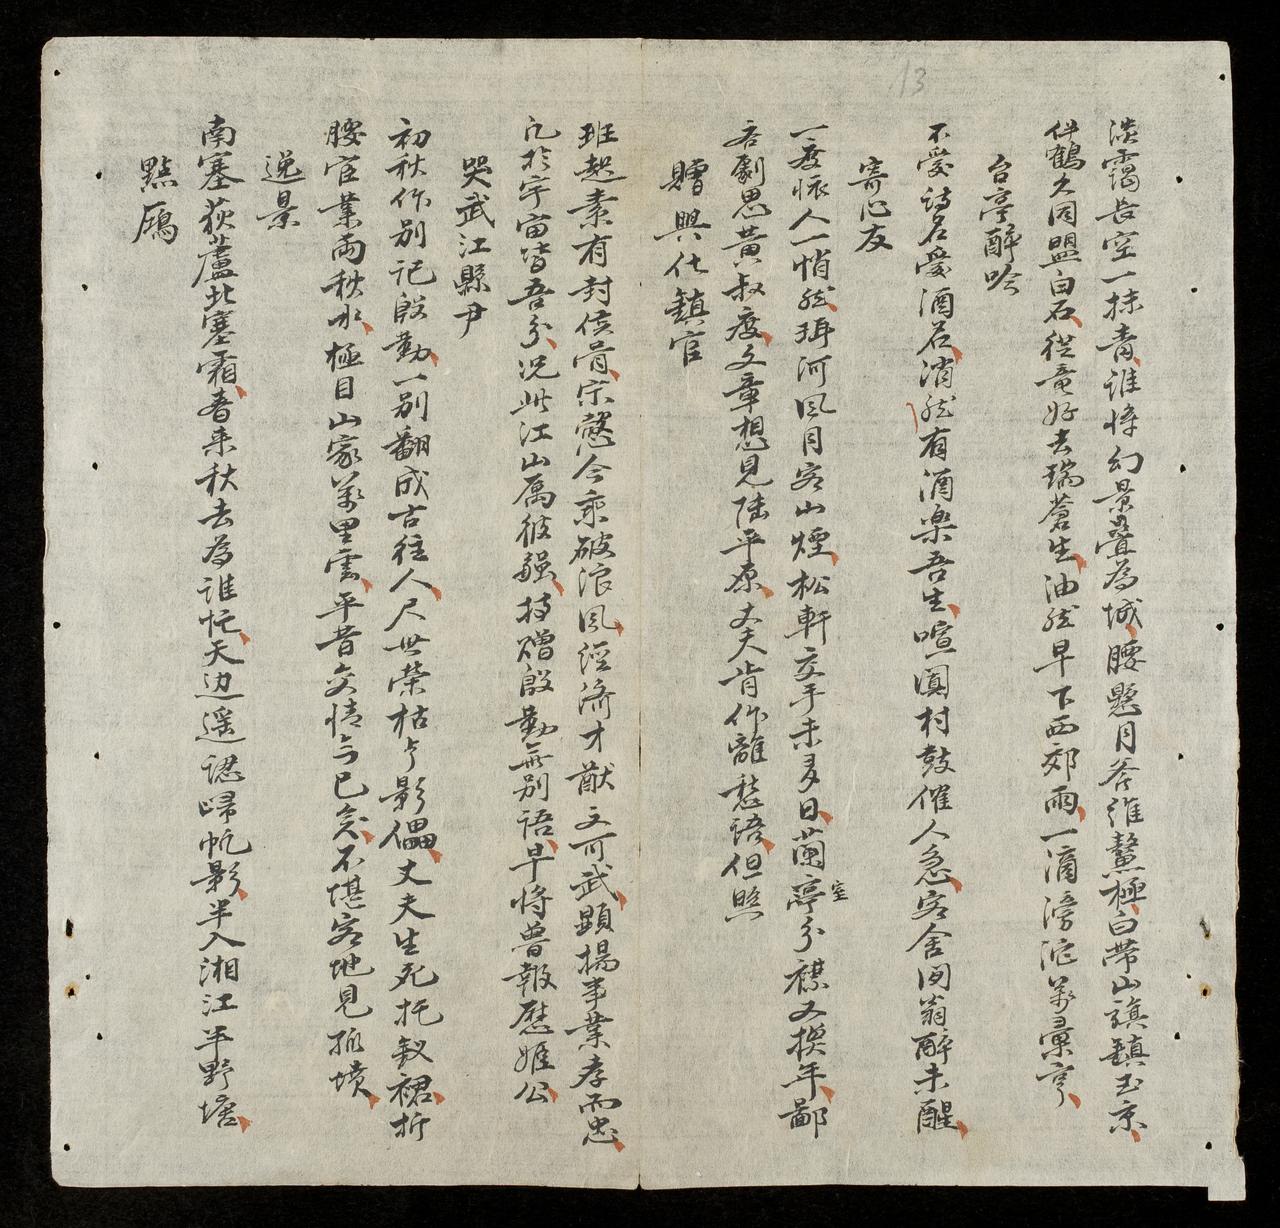 13
淡靄長空一抹青誰将幻景疊為城腰懸月斧維鰲極白帶山旗鎮玉京
伴鶴久同盟白石從竜好去瑞蒼生油然早下西郊雨一滴滂沱萬彙亨
台亭醉吟
不愛詩名愛酒名消然有酒楽吾生喧闐村鼓催人急客舍因翁醉未醒
寄心友
一度懷人一悄然珥河風月客山煙松軒交手未多日蘭亭室分襟又換年鄙
吝劇思黄叔度文章想見陸平原丈夫肯作離愁語但照
贈興化鎮官
班起素有封侯骨宗慤今乘破浪風經濟才猷文可武顕揚事業孝而忠
凡於宇宙皆吾分况此江山属彼強持贈殷勤無別語早将普報慰姬公
哭武江縣尹
初秋作別記殷勤一別翻成古往人尺世榮枯亏影傀丈夫生死托釵裙折
腰宦業両秋水極目山家萬里雲平昔交情今已矣不堪客地見孤墳
逸景
南塞荻蘆北塞霜春来秋去為誰忙天边遥認歸帆影半入湘江半野塘
點鴈